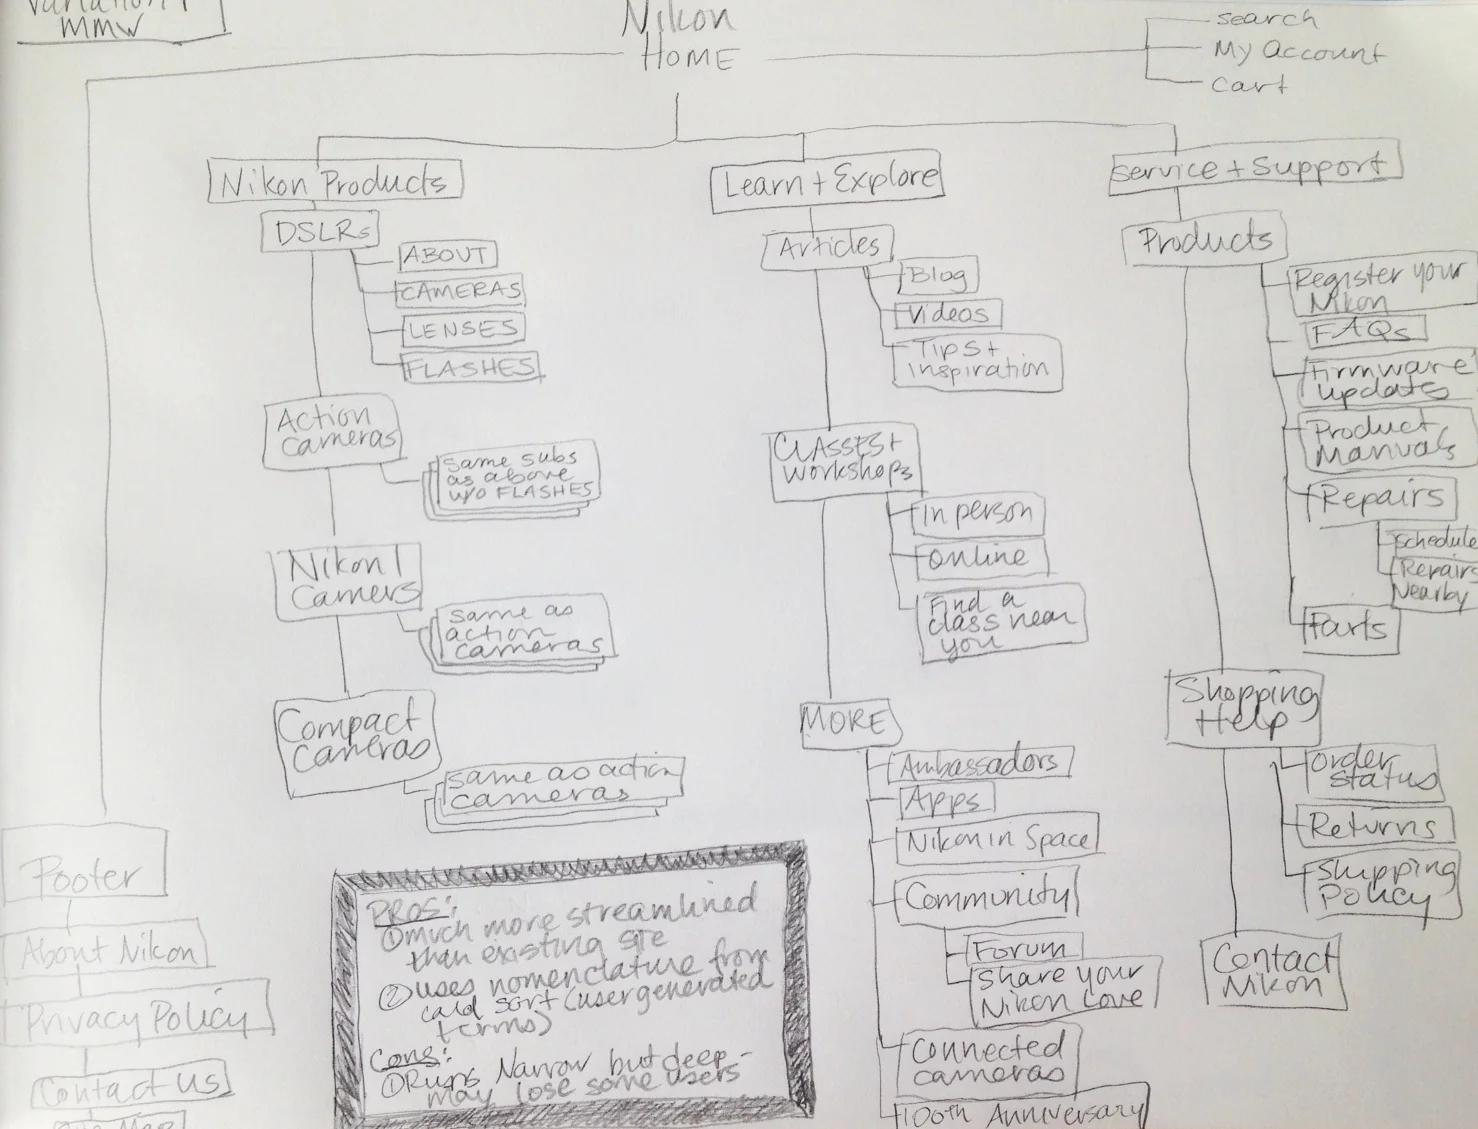 Variation 1
MMW
Nikon
HOME
search
My Account
cart
Nikon Products
DSLRs
ABOUT
CAMERAS
LENSES
FLASHES
Action
cameras
same subs
as above
w/o FLASHES
Nikon 1
Camers
same as
action
cameras
Compact
cameras
same as action
cameras
Learn + Explore
Articles
Blog
Videos
Tips +
inspiration
CLASSES +
workshops
In person
online
Find a
class near
you
MORE
Ambassadors
Apps
Nikon in Space
Community
Forum
Share your
Nikon Love
Connected
cameras
100th Anniversary
Service + Support
Products
Register your
Nikon
FAQs
Firmware
updates
Product
Manuals
Repairs
schedule
Repairs
Nearby
Parts
Shopping
Help
order
status
Returns
Shipping
Policy
Contact
Nikon
Footer
About Nikon
Privacy Policy
Contact Us
PROS:
① much more streamlined
than existing site
② uses nomenclature from
card sort (user generated
terms)
Cons:
① Runs Narrow but deep -
may lose some users